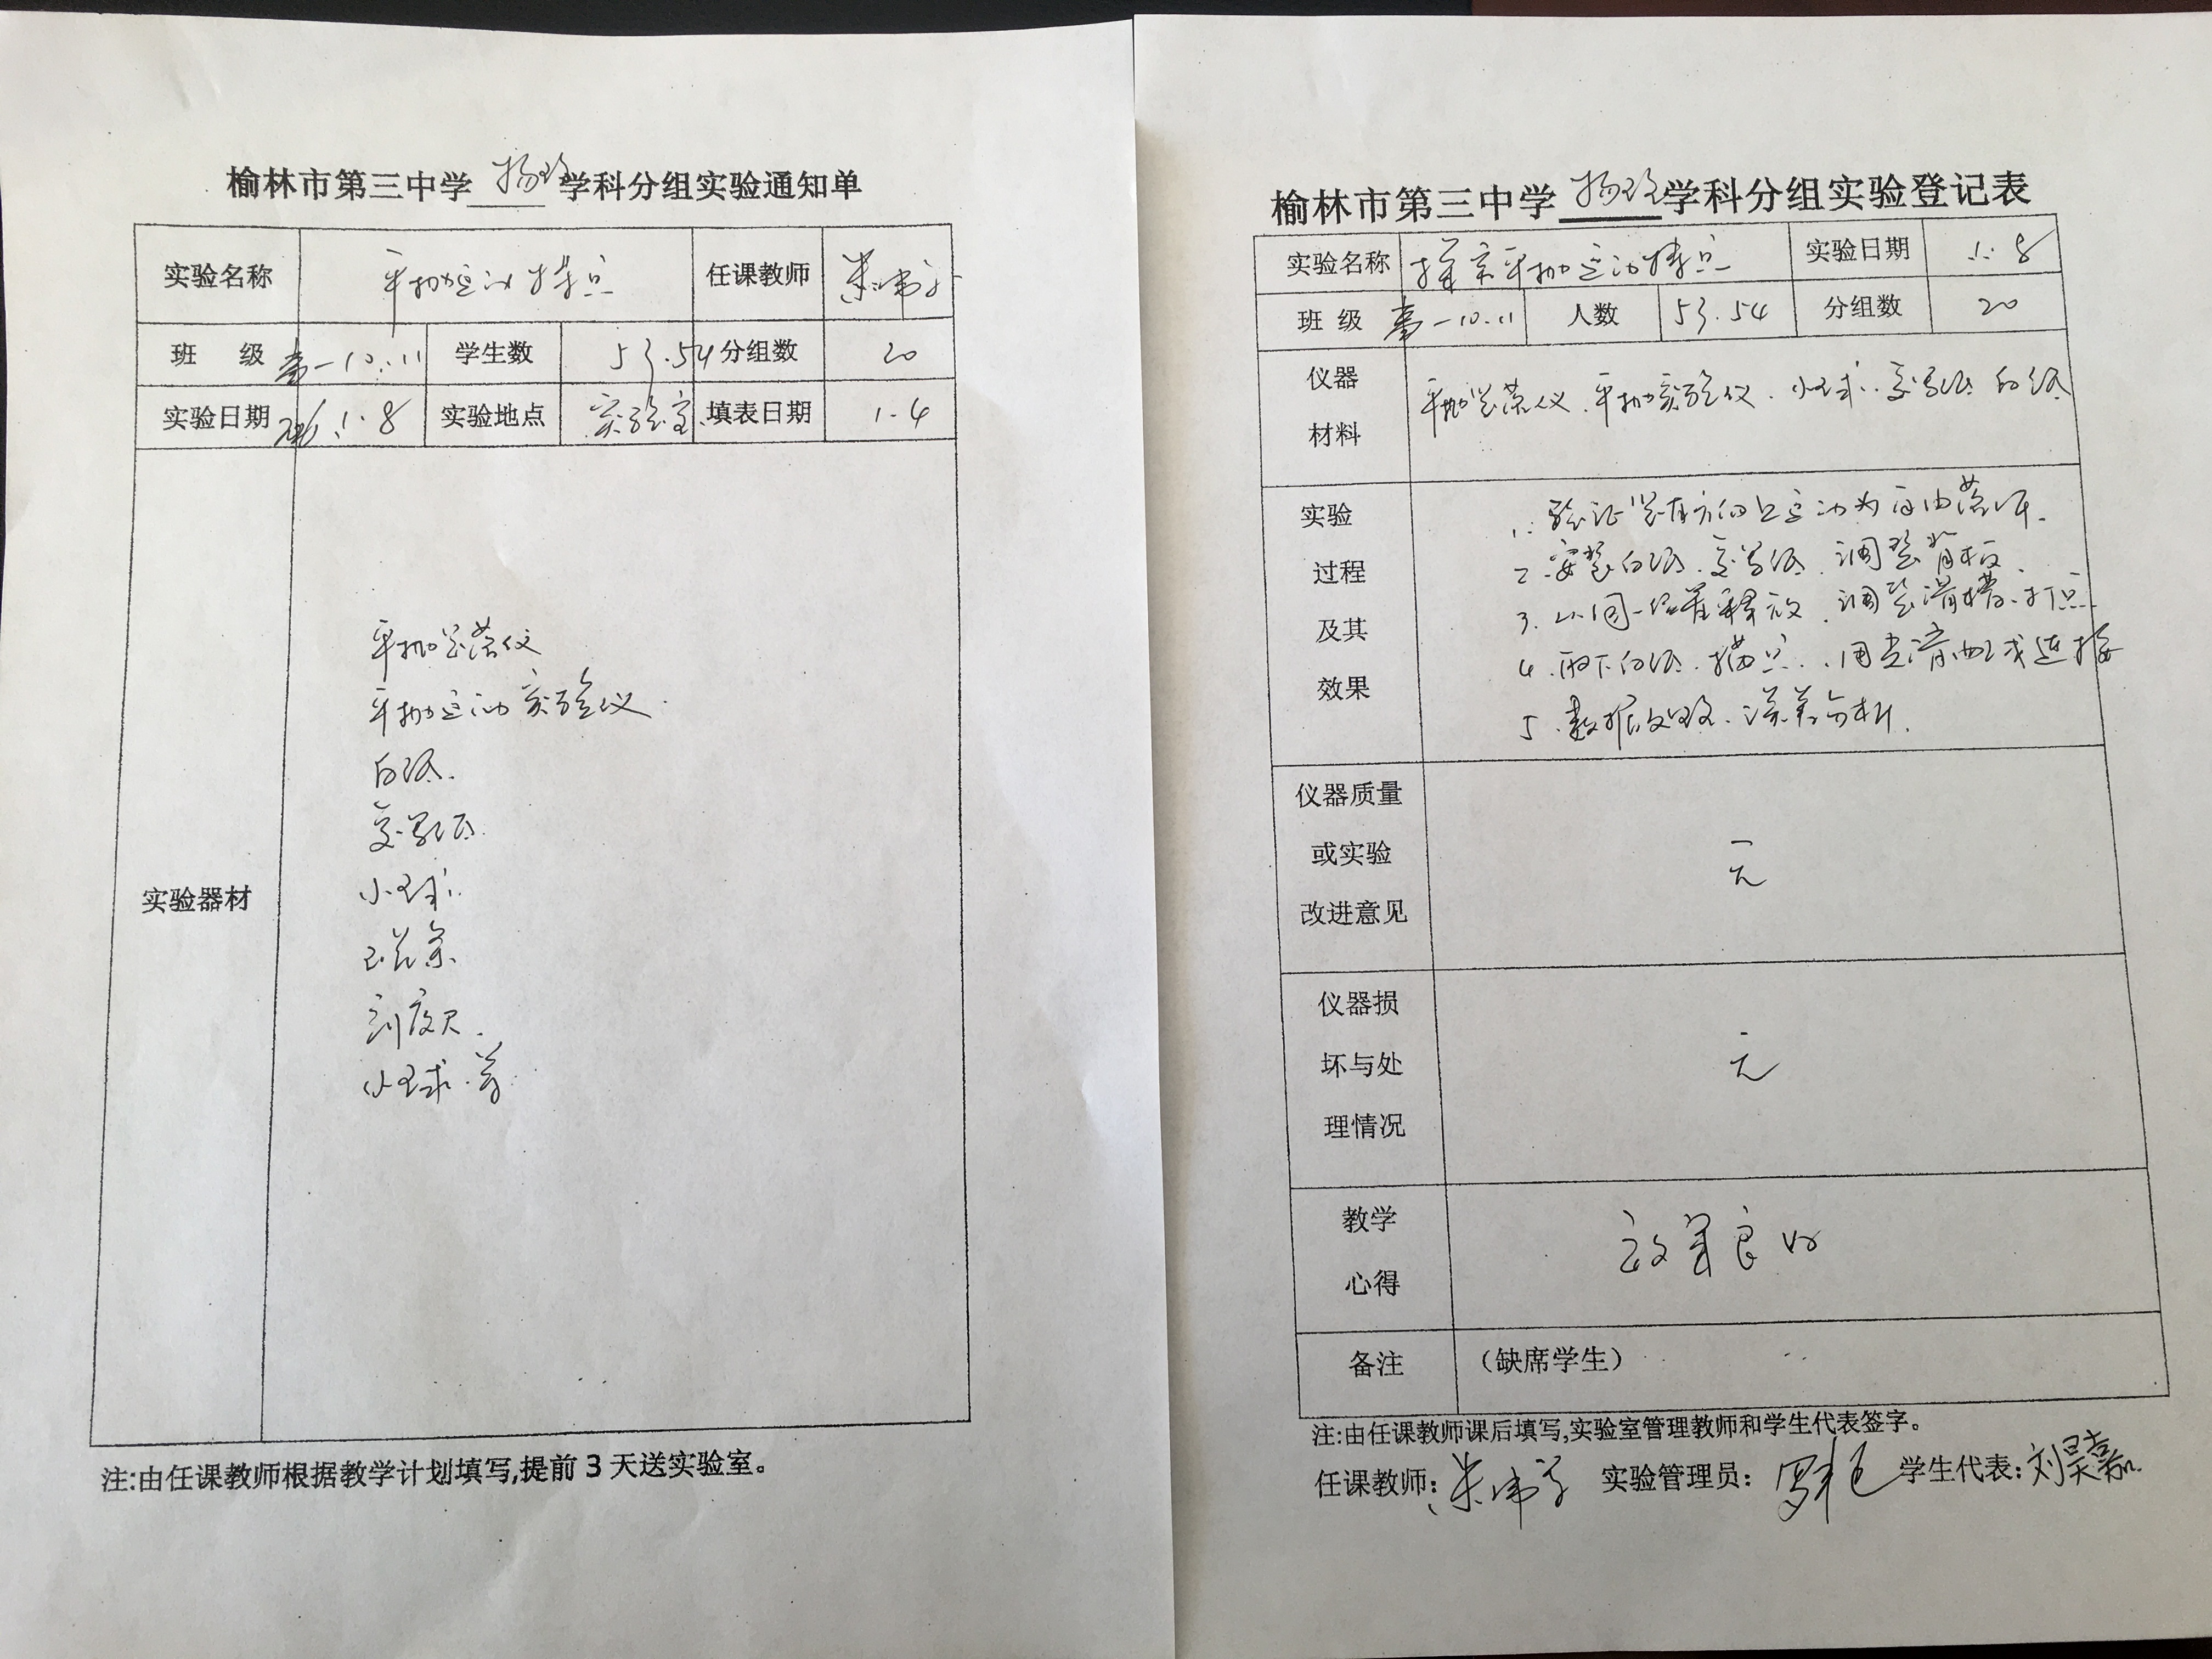 榆林市第三中学 物理 学科分组实验通知单
实验名称 平抛运动特点 任课教师
班 级 高一10.11 学生数 53.54 分组数 20
实验日期 1.8 实验地点 实验室 填表日期 1.4
实验器材
平抛竖落仪
平抛运动实验仪
白纸
复写纸
小球
刻度尺
小球 等
注:由任课教师根据教学计划填写,提前3天送实验室。
榆林市第三中学 物理 学科分组实验登记表
实验名称 探究平抛运动特点 实验日期 1.8
班 级 高一10.11 人数 53.54 分组数 20
仪器材料 平抛竖落仪、平抛实验仪、小球、复写纸 白纸
实验过程及其效果
1. 验证竖直方向上运动为自由落体.
2. 安装白纸、复写纸、调整背板.
3. 从同一位置释放、调整滑槽、打点
4. 取下白纸、描点、用光滑曲线连接
5. 数据处理、误差分析.
仪器质量或实验改进意见 无
仪器损坏与处理情况 无
教学心得 效果良好
备注 (缺席学生)
注:由任课教师课后填写,实验室管理教师和学生代表签字。
任课教师: 实验管理员: 学生代表: 刘昊嘉